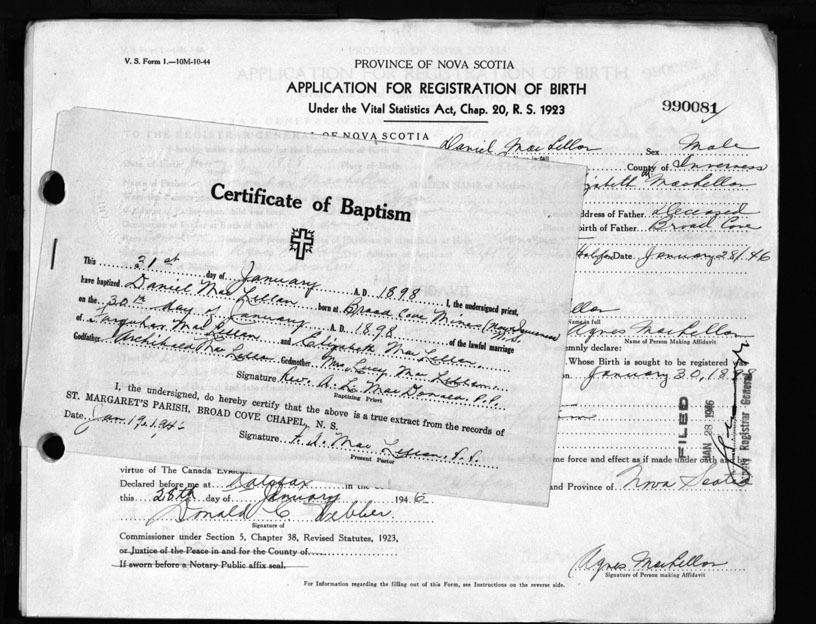 V. S. Form 1.—10M-10-44
PROVINCE OF NOVA SCOTIA
APPLICATION FOR REGISTRATION OF BIRTH
Under the Vital Statistics Act, Chap. 20, R. S. 1923
990081
OF NOVA SCOTIA
Daniel MacLellan Sex Male
in full
County of Inverness
zabeth MacLellan
Address of Father deceased
birth of Father Broad Cove
Halifax Date January 28/46
Certificate of Baptism
This 31st day of January A. D. 1898 I, the undersigned priest,
have baptized Daniel MacLellan born at Broad Cove Mines (Now Inverness N.S.
on the 30th day of January A. D. 1898
of Farquhar MacLellan and Elizabeth MacLellan of the lawful marriage
Godfather Archibald MacLellan Godmother Mrs Lucy MacLellan
Signature Rev. A. L. MacDonald, P.P.
Baptizing Priest
I, the undersigned, do hereby certify that the above is a true extract from the records of
ST. MARGARET'S PARISH, BROAD COVE CHAPEL, N. S.
Date Jan. 19, 1946 Signature MacLellan, P.P.
Present Pastor
llan
Name in full
Agnes MacLellan
Name of Person Making Affidavit
emnly declare:
Whose Birth is sought to be registered
on January 30, 1898
FILED
JAN 28 1946
Deputy Registrar General
me force and effect as if made under oath and by
virtue of The Canada Evidence
Declared before me at Halifax in the
and Province of Nova Scotia
this 28th day of January 1946
Donald C Webber
Signature of
Commissioner under Section 5, Chapter 38, Revised Statutes, 1923,
or Justice of the Peace in and for the County of
If sworn before a Notary Public affix seal.
Agnes MacLellan
Signature of Person making Affidavit
For Information regarding the filling out of this Form, see Instructions on the reverse side.